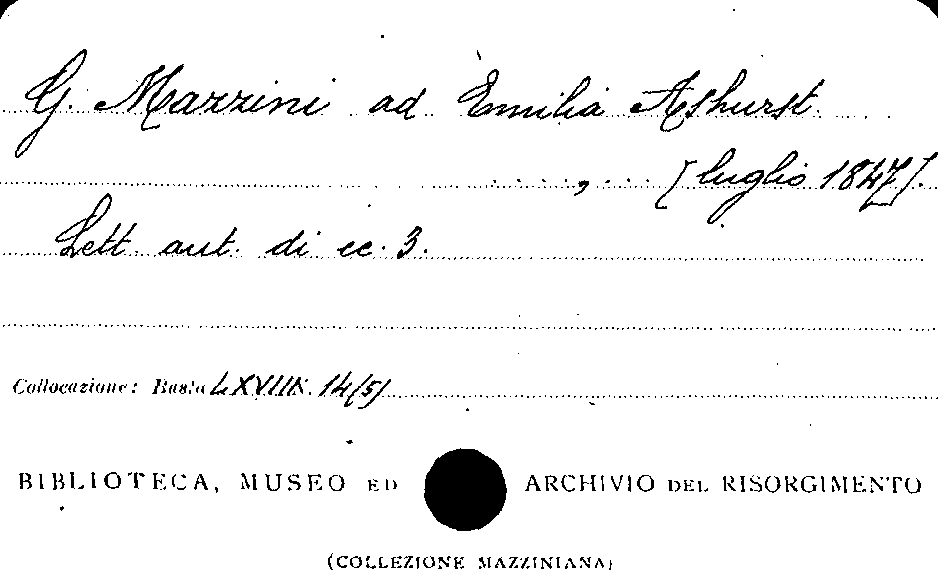 G. Mazzini ad Emilia Ashurst
, [luglio 1847].
Lett. aut. di cc. 3.
Collocazione: Busta LXVIII N. 14(5)
BIBLIOTECA, MUSEO ED ARCHIVIO DEL RISORGIMENTO
(COLLEZIONE MAZZINIANA)